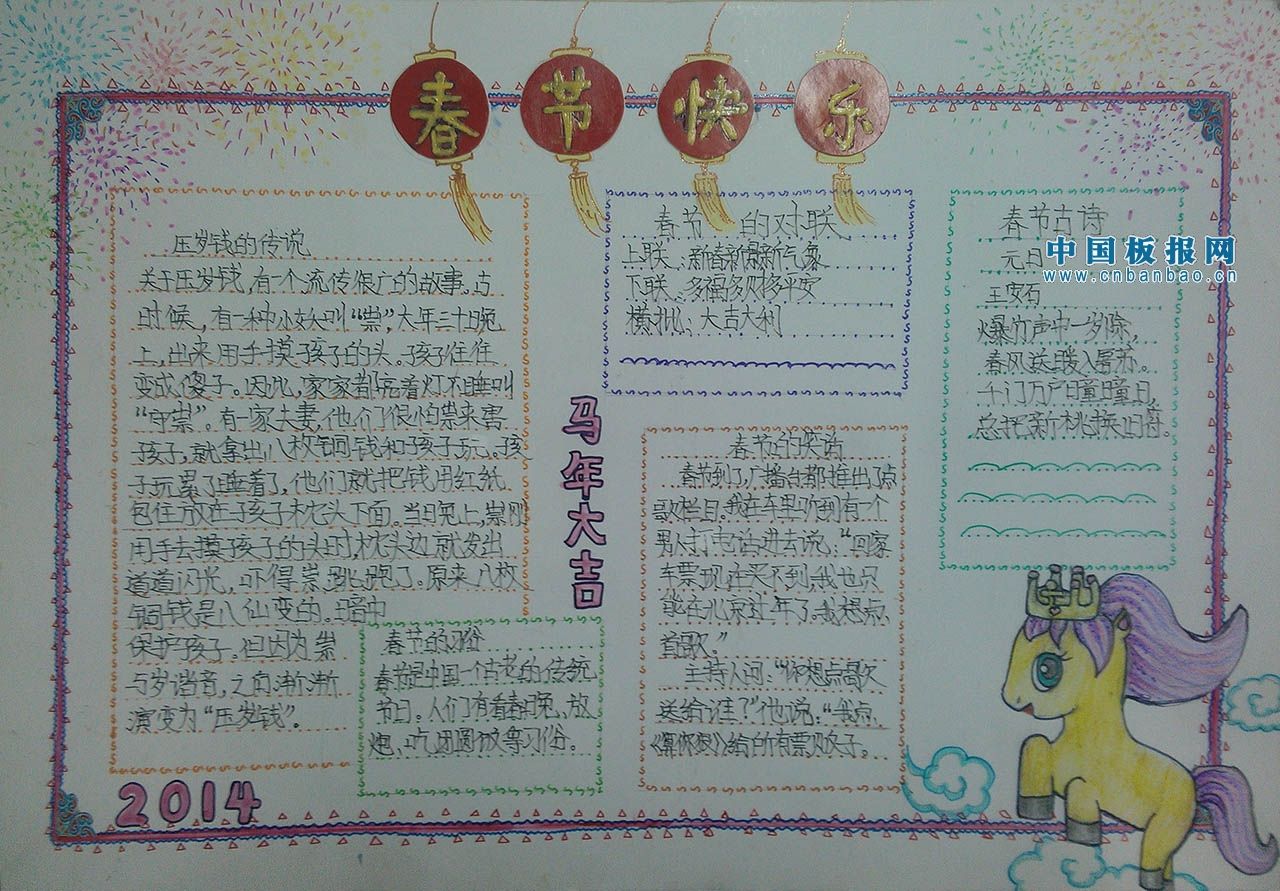 春节快乐
压岁钱的传说
关于压岁钱,有一个流传很广的故事。古
时候,有一种小妖叫“祟”,大年三十日晚
上,出来用手摸孩子的头。孩子往往
变成傻子。因此,家家都亮着灯不睡叫
“守祟”。有一家夫妻,他们很怕祟来害
孩子,就拿出八枚铜钱和孩子玩。孩
子玩累了睡着了,他们就把钱用红纸
包住放在子孩子枕头下面。当日晚上,祟刚
用手去摸孩子的头时枕头边就发出
道道闪光,吓得祟跳跑了。原来八枚
铜钱是八仙变的。暗中
保护孩子。但因为祟
与岁谐音,之向渐渐
演变为“压岁钱”。
2014
春节的习俗
春节是中国一个古老的传统
节日。人们有看春晚、放
炮、吃团圆饭等习俗。
马年大吉
春节的对联
上联:新春新年新气象
下联:多福多财多平安
横批:大吉大利
春节的笑话
春节到了,广播台都推出了点
歌栏目。我在车里听到有一个
男人打电话进去说:“回家
车票现在买不到,我也只
能在北京过年了,我想点
首歌。”
主持人问:“你想点歌欠
送给谁?”他说:“我点
《算你狠》给所有票贩子。
春节古诗
元日
王安石
爆竹声中一岁除,
春风送暖入屠苏。
千门万户曈曈日,
总把新桃换旧符。
中国板报网
www.cnbanbao.cn